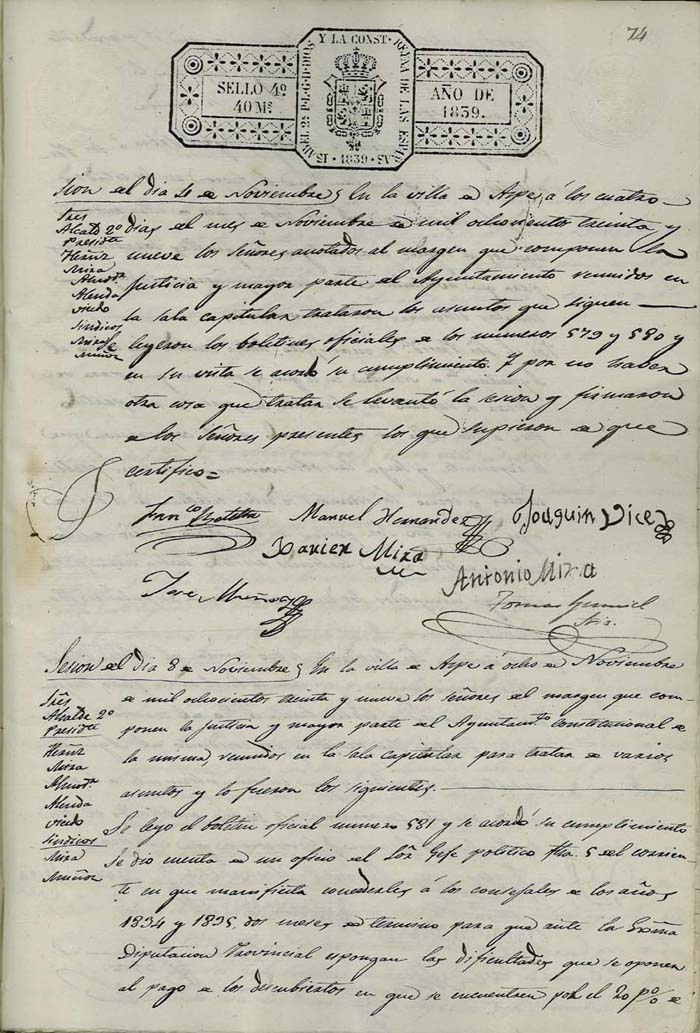 74
SELLO 4º
40 Mˢ
ISABEL 2ª P. L. G. D. DIOS Y LA CONST. REYNA DE LAS ESPAÑAS
1839
AÑO DE
1839.
Sion del dia 4 de Noviembre En la villa de Aspe á los cuatro
dias del mes de Noviembre de mil ochocientos treinta y
nueve los Señores anotados al margen que componen la
Justicia y mayor parte del Ayuntamiento reunidos en
la sala capitular trataron los asuntos que siguen
Se leyeron los boletines oficiales de los numeros 579 y 580 y
en su vista se acordó su cumplimiento. Y por no haber
otra cosa que tratar se levantó la sesion y firmaron
de los Señores presentes los que supieron de que
certifico=
Sres
Alcalᵉ 2º
Presidᵗᵉ
Hernz
Mira
Almodʳ
Alenda
Viedo
Sindicos
Mira
Muñoz
Franᶜᵒ Botella
Manuel Hernandez
Joaquin Vice
Xavier Mira
Antonio Mira
Jose Muñoz
Tomas
Sⁱᵒ
Sesion del dia 8 de Noviembre En la villa de Aspe á ocho de Noviembre
de mil ochocientos treinta y nueve los señores del margen que com-
ponen la Justicia y mayor parte del Ayuntamᵗᵒ constitucional de
la misma, reunidos en la sala capitular para tratar de varios
asuntos y lo fueron los siguientes.
Sres
Alcalde 2º
Presidᵗᵉ
Hernz
Mira
Almodʳ
Alenda
Viedo
Sindicos
Mira
Muñoz
Se leyo el boletin oficial numero 581 y se acordó su cumplimiento
Se dio cuenta de un oficio del Sôr Gefe politico fha 5 del corrien-
te en que manifiesta concederles á los concejales de los años
1834 y 1835, dos meses de termino para que ante la Exma
Diputacion Provincial espongan las dificultades que se oponen
al pago de los descubiertos en que se encuentren por el 20 p% de